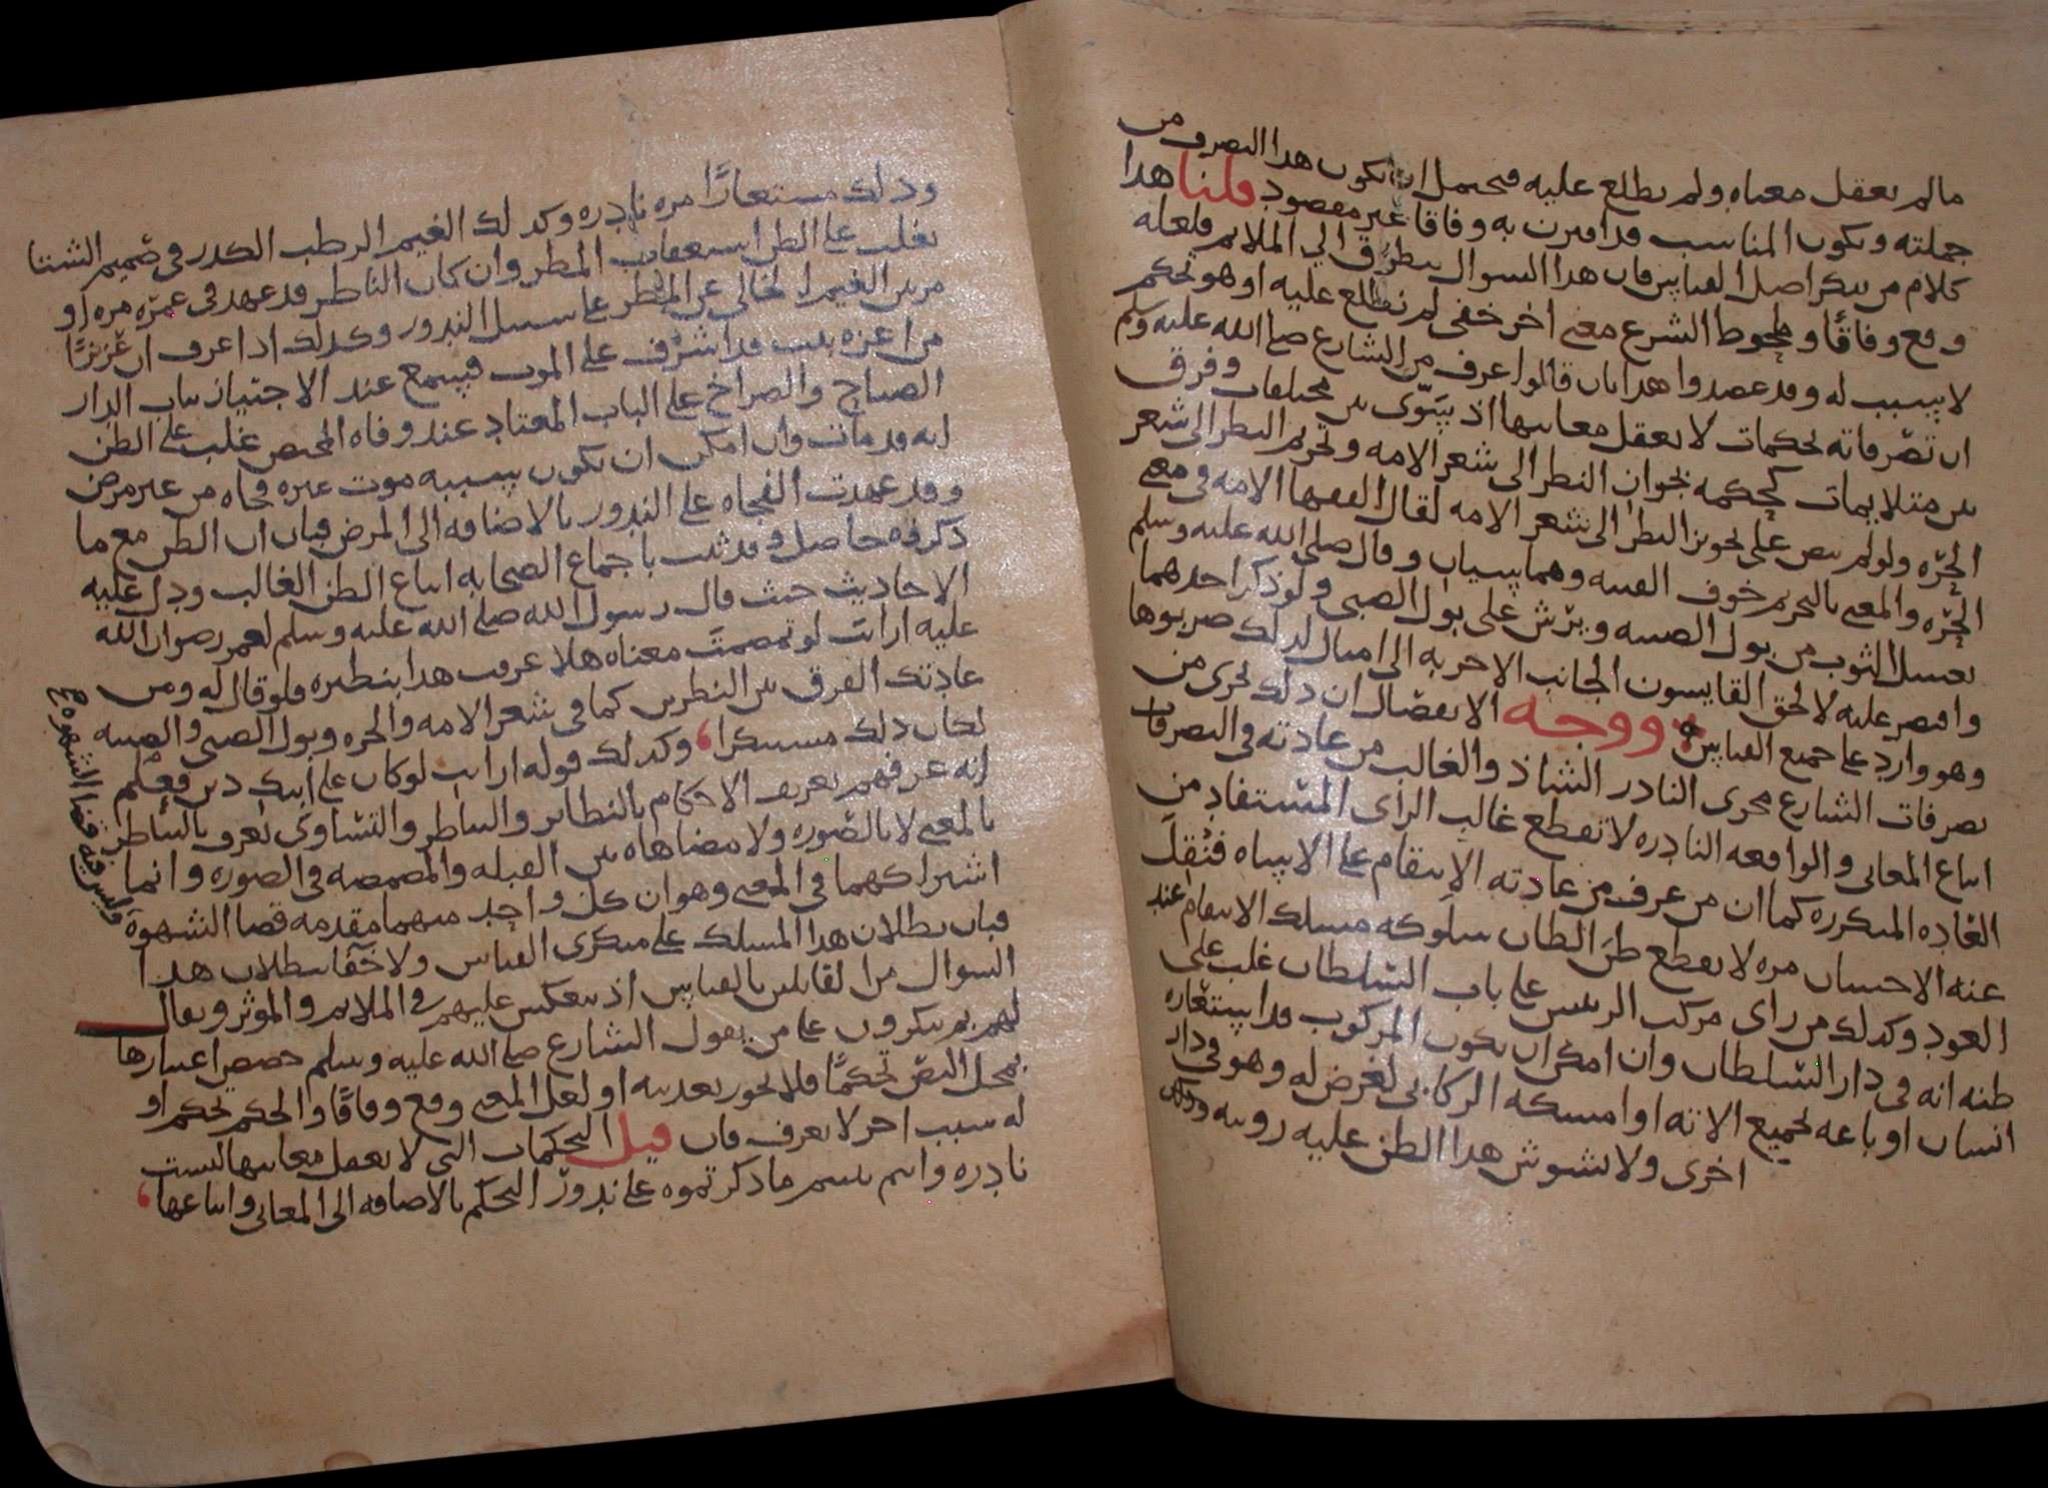 مالم يعقل معناه ولم يطلع عليه فيحتمل ان يكون هذا التصرف من
جملته ويكون المناسب قد اقترن به وفاقا غير مقصود قلنا هذا
كلام من ينكر اصل القياس فان هذا السوال يتطرق الي الملايم فلعله
وقع وفاقًا وملحوظ الشرع معنى اخر خفي لم نطلع عليه او هو تحكم
لا سبب له وقد عضدوا هذا بان قالوا عرف من الشارع صلى الله عليه وسلم
ان تصرفاته تحكمات لا يعقل معانيها اذ يسوّى بين مختلفات وفرق
بين متلايمات كحكمه بجواز النظر الى شعر الامه وتحريم النظر الى شعر
الحرّه ولو لم ينص على تجويز النظر الى شعر الامه لقال الفقها الامه في معنى
الحرّه والمعنى بالتحريم خوف الفتنه وهما سيان وقال صلى الله عليه وسلم
يغسل الثوب من بول الصبيه ويرش على بول الصبي ولو ذكر احدهما
واقتصر عليه لالحق القايسون الجانب الاخر به الى امثال لذلك ضربوها
وهو وارد على جميع القياسين ووجه الانفصال ان ذلك يجرى من
تصرفات الشارع مجرى النادر الشاذ والغالب من عادته في التصرفات
اتباع المعاني والواقعه النادره لا تقطع غالب الراى المستفاد من
العاده المتكرره كما ان من عرف من عادته الانتقام على الاساه فنُقِل
عنه الاحسان مره لا يقطع ظنَ الظان سلوكه مسلك الانتقام عند
العود وكذلك من راى مركب الرئيس على باب السلطان غلب على
ظنه انه في دار السلطان وان امكن ان يكون المركوب قد استعاره
انسان او باعه بجميع الاته او امسكه الركابي لغرض له وهو في دار
اخرى ولا يشوش هذا الظن عليه رويته
وذلك مستعارًا مره نادره وكذلك الغيم الرطب الكدر في صميم الشتا
يغلب على الظن استعقاب المطر وان كان الناظر قد عهد في عمّره مره او
مرتين الغيم الخالي عن المطر على سبيل الندور وكذلك اذا عرف ان عزيزًا
من اعزه بيت قد اشرف على الموت فيسمع عند الاجتياز بباب الدار
الصياح والصراخ على الباب المعتاد عند وفاه الشخص غلب على الظن
انه قد مات وان امكن ان يكون بسببه موت غيره فجاه من غير مرض
وقد عهدت الفجاه على الندور بالاضافه الى المرض فبان ان الظن مع ما
ذكرفه حاصل وقد ثبت باجماع الصحابه اتباع الظن الغالب ودل عليه
الاحاديث حيث قال رسول الله صلى الله عليه وسلم لعمر رضوان الله
عليه ارايت لو تمضمت معناه هلا عرفت هذا بنظيره فلو قال له ومن
عادتك الفرق بين النظرين كما في شعر الامه والحره وبول الصبي والصبيه
لكان ذلك مستنكرا، وكذلك قوله ارايت لو كان على ابيك دين فعِلْم
انه عرفهم تعريف الاحكام بالنظائر والتناظر والتساوى يعرف بالتناظر
بالمعنى لا بالصوره ولا مضاهاه بين القبله والمضمضه في الصوره وانما
اشتراكهما في المعنى وهو ان كل واحد منهما مقدمه قضا الشهوة
وليس فيه قضا الشهوه صح
فبان بطلان هذا المسلك على منكرى القياس ولا خفا ببطلان هذا
السوال من القايلين بالقياس اذ ينعكس عليهم في الملايم والموثر ويقال
لهم بم ينكرون على من يقول الشارع صلى الله عليه وسلم خصص اعتبارها
بمحل النص تحكمًا فلا يجوز تعديته او لعل المعنى وقع وفاقًا والحكم تحكم او
له سبب اخر لا يعرف فان قيل التحكمات التي لا يعقل معانيها ليست
نادره وانتم بنيتم ما ذكرتموه على ندور التحكم بالاضافه الى المعانى واتباعها،